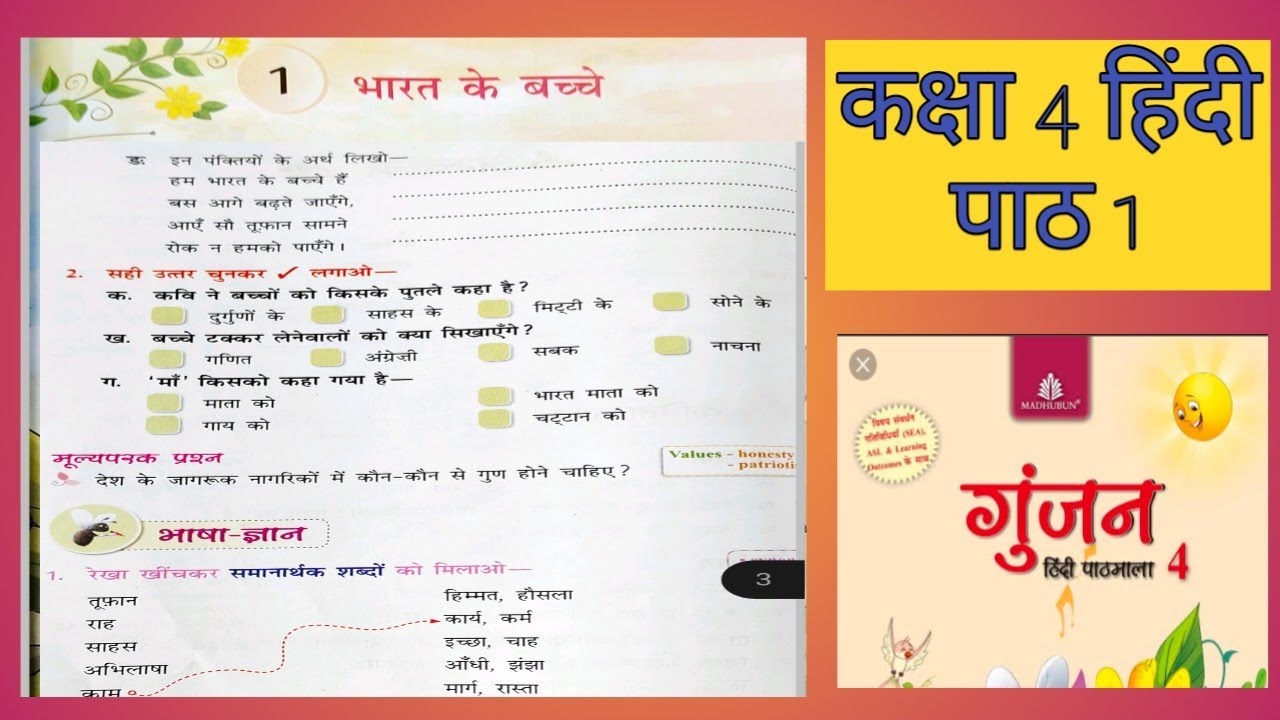 1 भारत के बच्चे
ङ. इन पंक्तियों के अर्थ लिखो—
हम भारत के बच्चे हैं
बस आगे बढ़ते जाएँगे,
आएँ सौ तूफ़ान सामने
रोक न हमको पाएँगे।
2. सही उत्तर चुनकर ✓ लगाओ—
क. कवि ने बच्चों को किसके पुतले कहा है?
दुर्गुणों के साहस के मिट्टी के सोने के
ख. बच्चे टक्कर लेनेवालों को क्या सिखाएँगे?
गणित अंग्रेज़ी सबक नाचना
ग. 'माँ' किसको कहा गया है—
माता को भारत माता को
गाय को चट्टान को
मूल्यपरक प्रश्न
देश के जागरूक नागरिकों में कौन-कौन से गुण होने चाहिए?
Values - honesty
- patrioti
भाषा-ज्ञान
1. रेखा खींचकर समानार्थक शब्दों को मिलाओ—
तूफ़ान हिम्मत, हौसला
राह कार्य, कर्म
साहस इच्छा, चाह
अभिलाषा आँधी, झंझा
काम मार्ग, रास्ता
3
कक्षा 4 हिंदी
पाठ 1
MADHUBUN®
विषय संवर्धन
गतिविधियाँ (SEA),
ASL & Learning
Outcomes के साथ
गुंजन
हिंदी पाठमाला 4